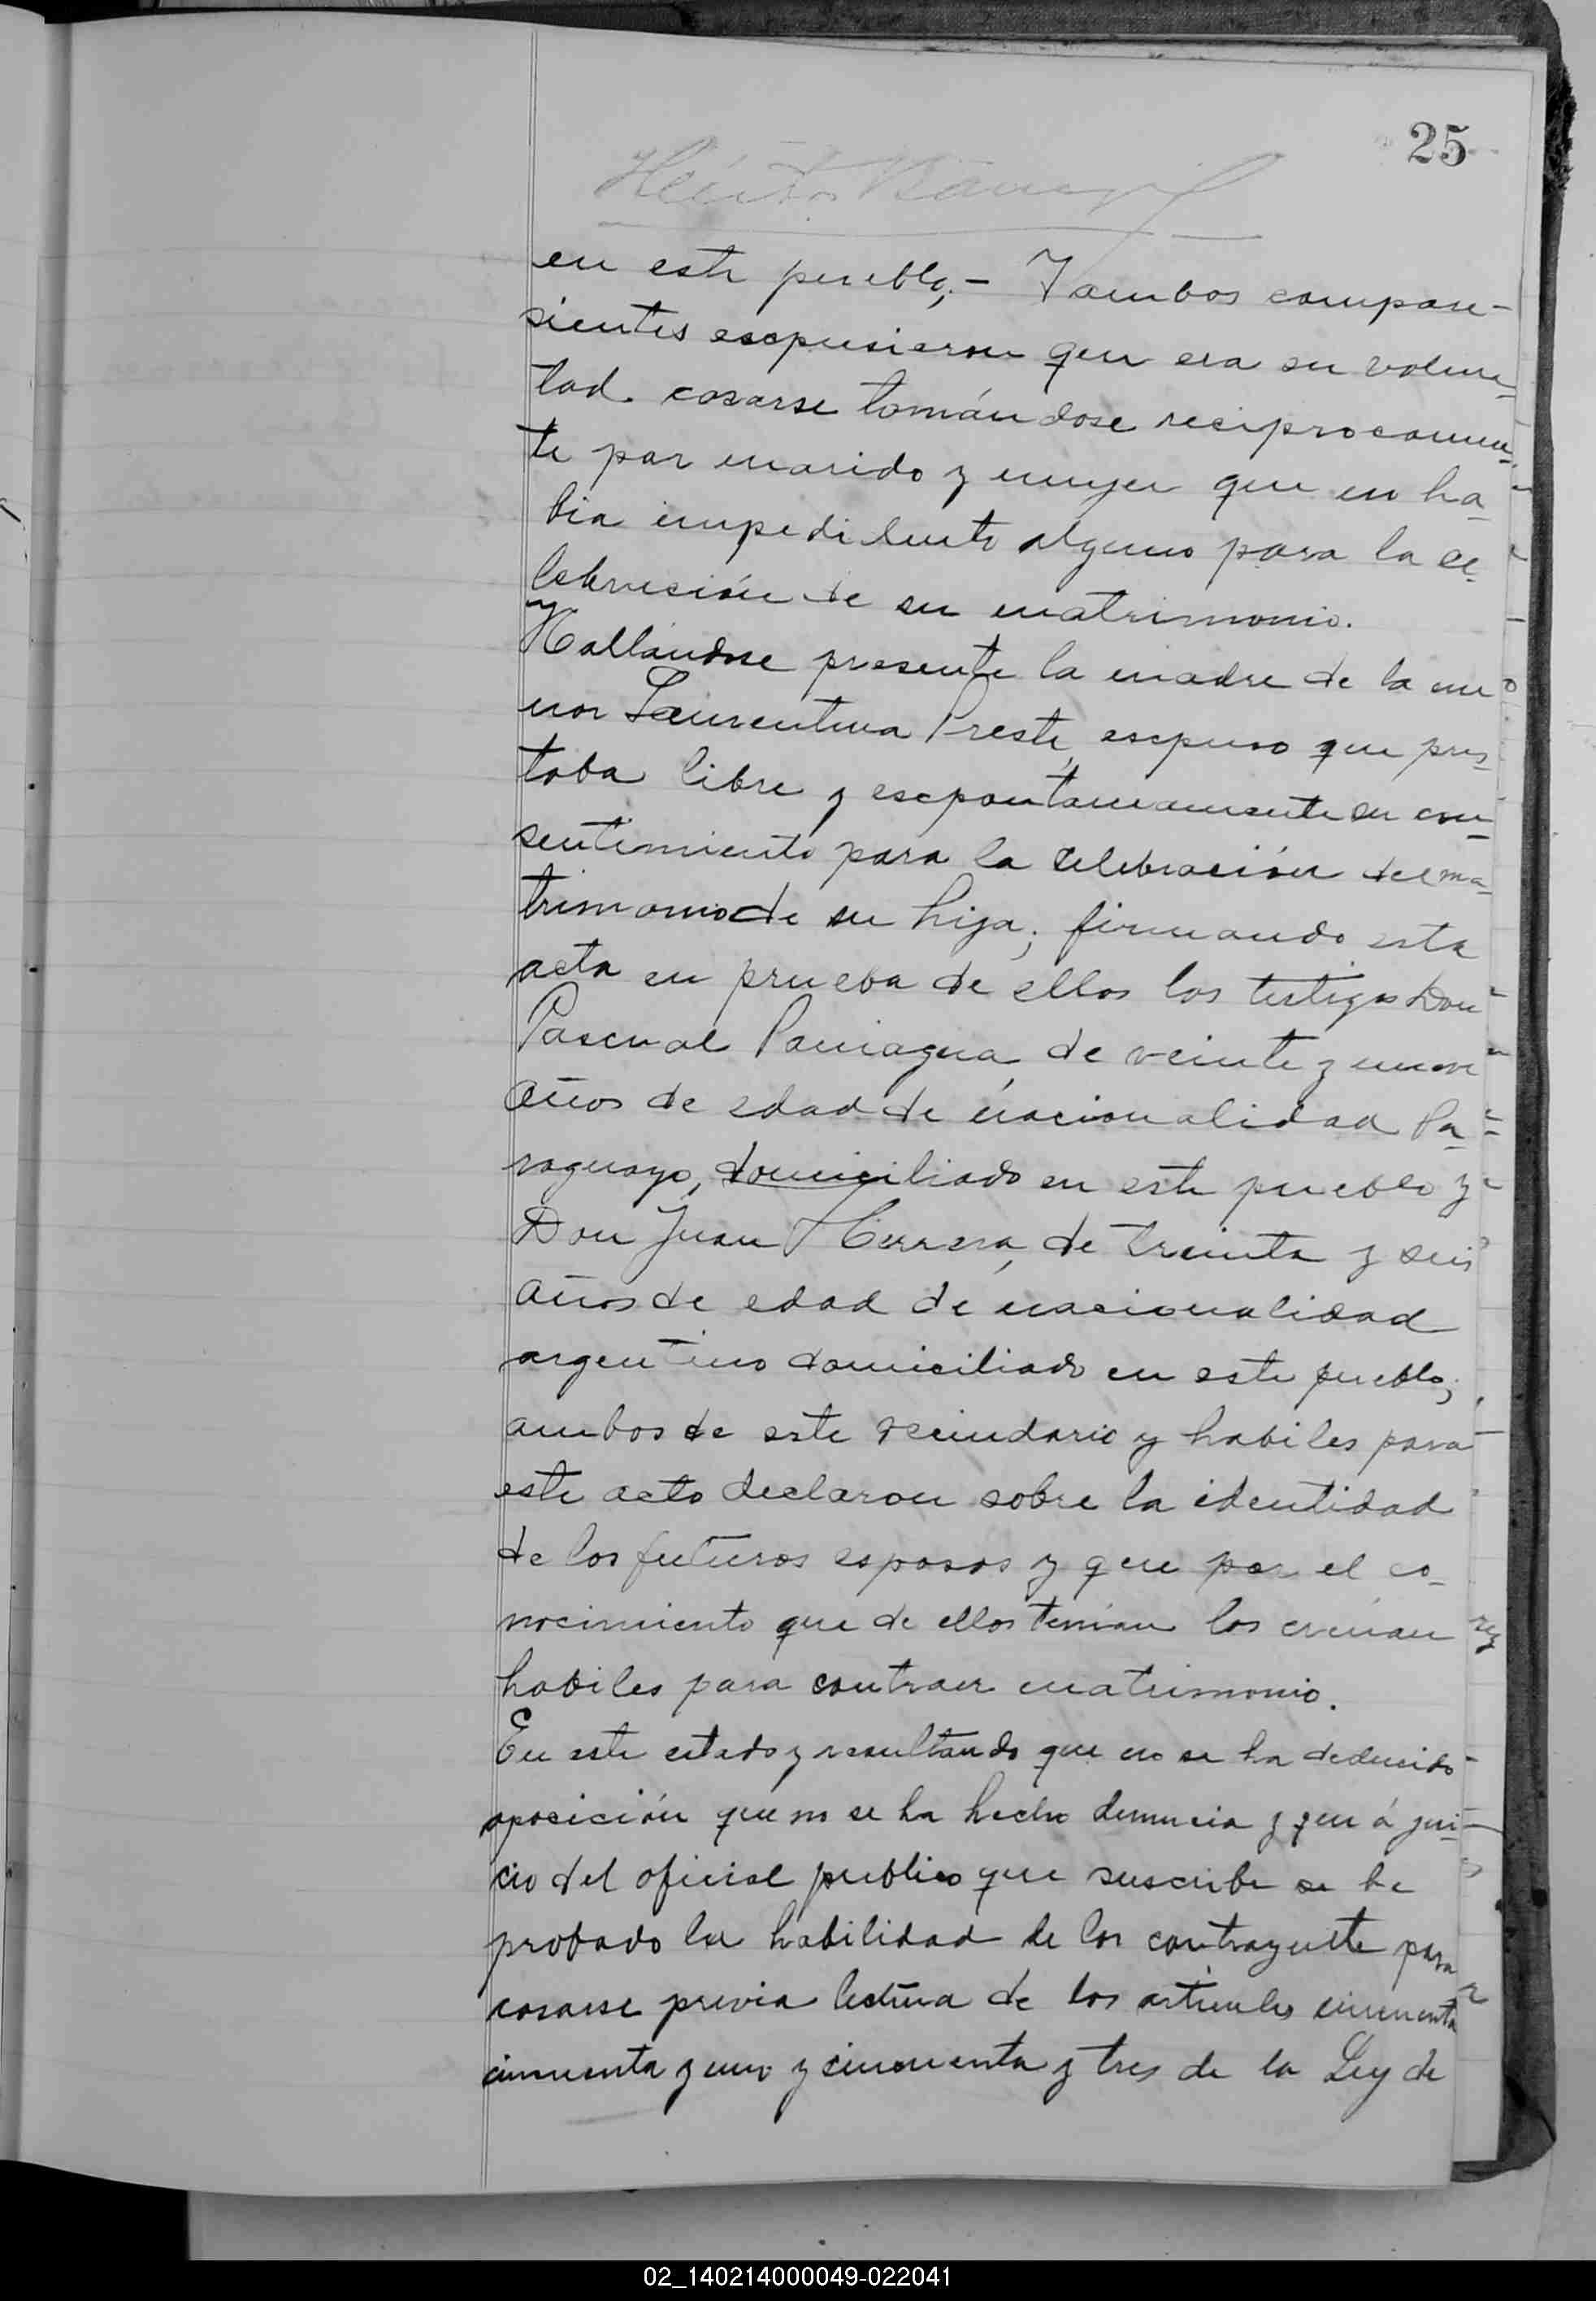 25
en este pueblo,- Y ambos compare-
sientes escpusieron que era su volun-
tad casarse tomándose reciprocamen-
te por marido y mujer que no ha-
bia impedimento alguno para la ce-
lebración de su matrimonio.
Y Hallandose presente la madre de la me
nor Laurentina Preste, escpuso que pres-
taba libre y escpontaneamente su con-
sentimiento para la celebración del ma-
trimonio de su hija; firmando esta
acta en prueba de ellos los testigos Don
Pascual Paniagua, de veinte y nueve
años de edad de nacionalidad Pa-
raguayo, domiciliado en este pueblo y
Don Juan Herrera, de treinta y seis
años de edad de nacionalidad
argentino domiciliado en este pueblo;
ambos de este vecindario y habiles para
este acto declaron sobre la identidad
de los futuros esposos y que por el co-
nocimiento que de ellos tenían los creían
habiles para contraer matrimonio.
En este estado y resultando que no se ha deducido
oposición que no se ha hecho denuncia y que á jui-
cio del oficial publico que suscribe se ha
probado la habilidad de los contrayente para
casarse previa lectura de los articulos cincuenta
cincuenta y uno y cincuenta y tres de la Ley de
02_140214000049-022041